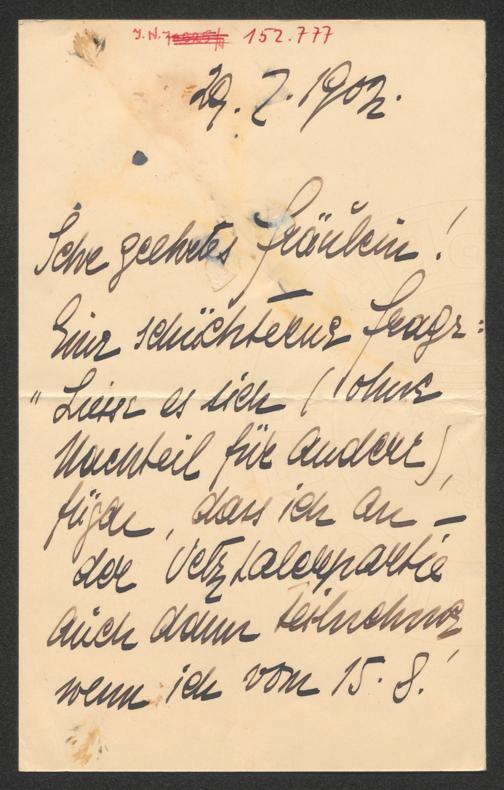 J. N. 152.777
29. 7. 1902.
Sehr geehrtes Fräulein!
Eine schüchterne Frage:
"Liesse es sich (ohne
Nachteil für Andere),
fügen, dass ich an –
der Oetztalerpartie
auch dann teilnehme,
wenn ich vom 15. 8.